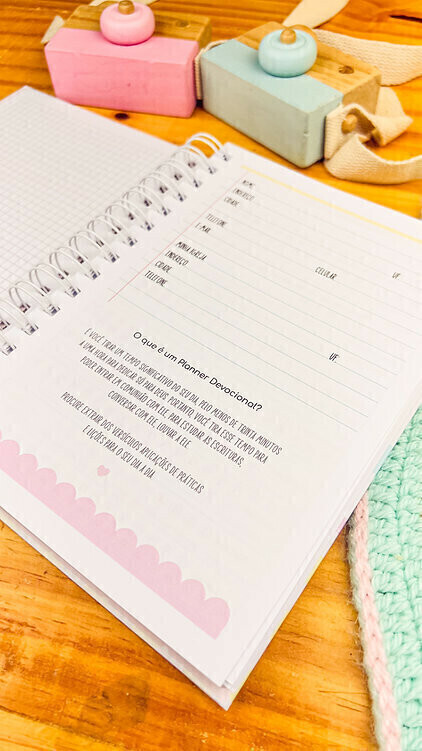 NOME
ENDEREÇO
CIDADE
TELEFONE CELULAR UF
E-MAIL
MINHA IGREJA
ENDEREÇO
CIDADE UF
TELEFONE
O que é um Planner Devocional?
É VOCÊ TIRAR UM TEMPO SIGNIFICATIVO DO SEU DIA, PELO MENOS DE TRINTA MINUTOS
A UMA HORA PARA DEDICAR SÓ PARA DEUS. PORTANTO, VOCÊ TIRA ESSE TEMPO PARA
PODER ENTRAR EM COMUNHÃO COM ELE, PARA ESTUDAR AS ESCRITURAS,
CONVERSAR COM ELE, LOUVAR A ELE.
PROCURE EXTRAIR DOS VERSÍCULOS APLICAÇÕES DE PRÁTICAS
E LIÇÕES PARA O SEU DIA A DIA.